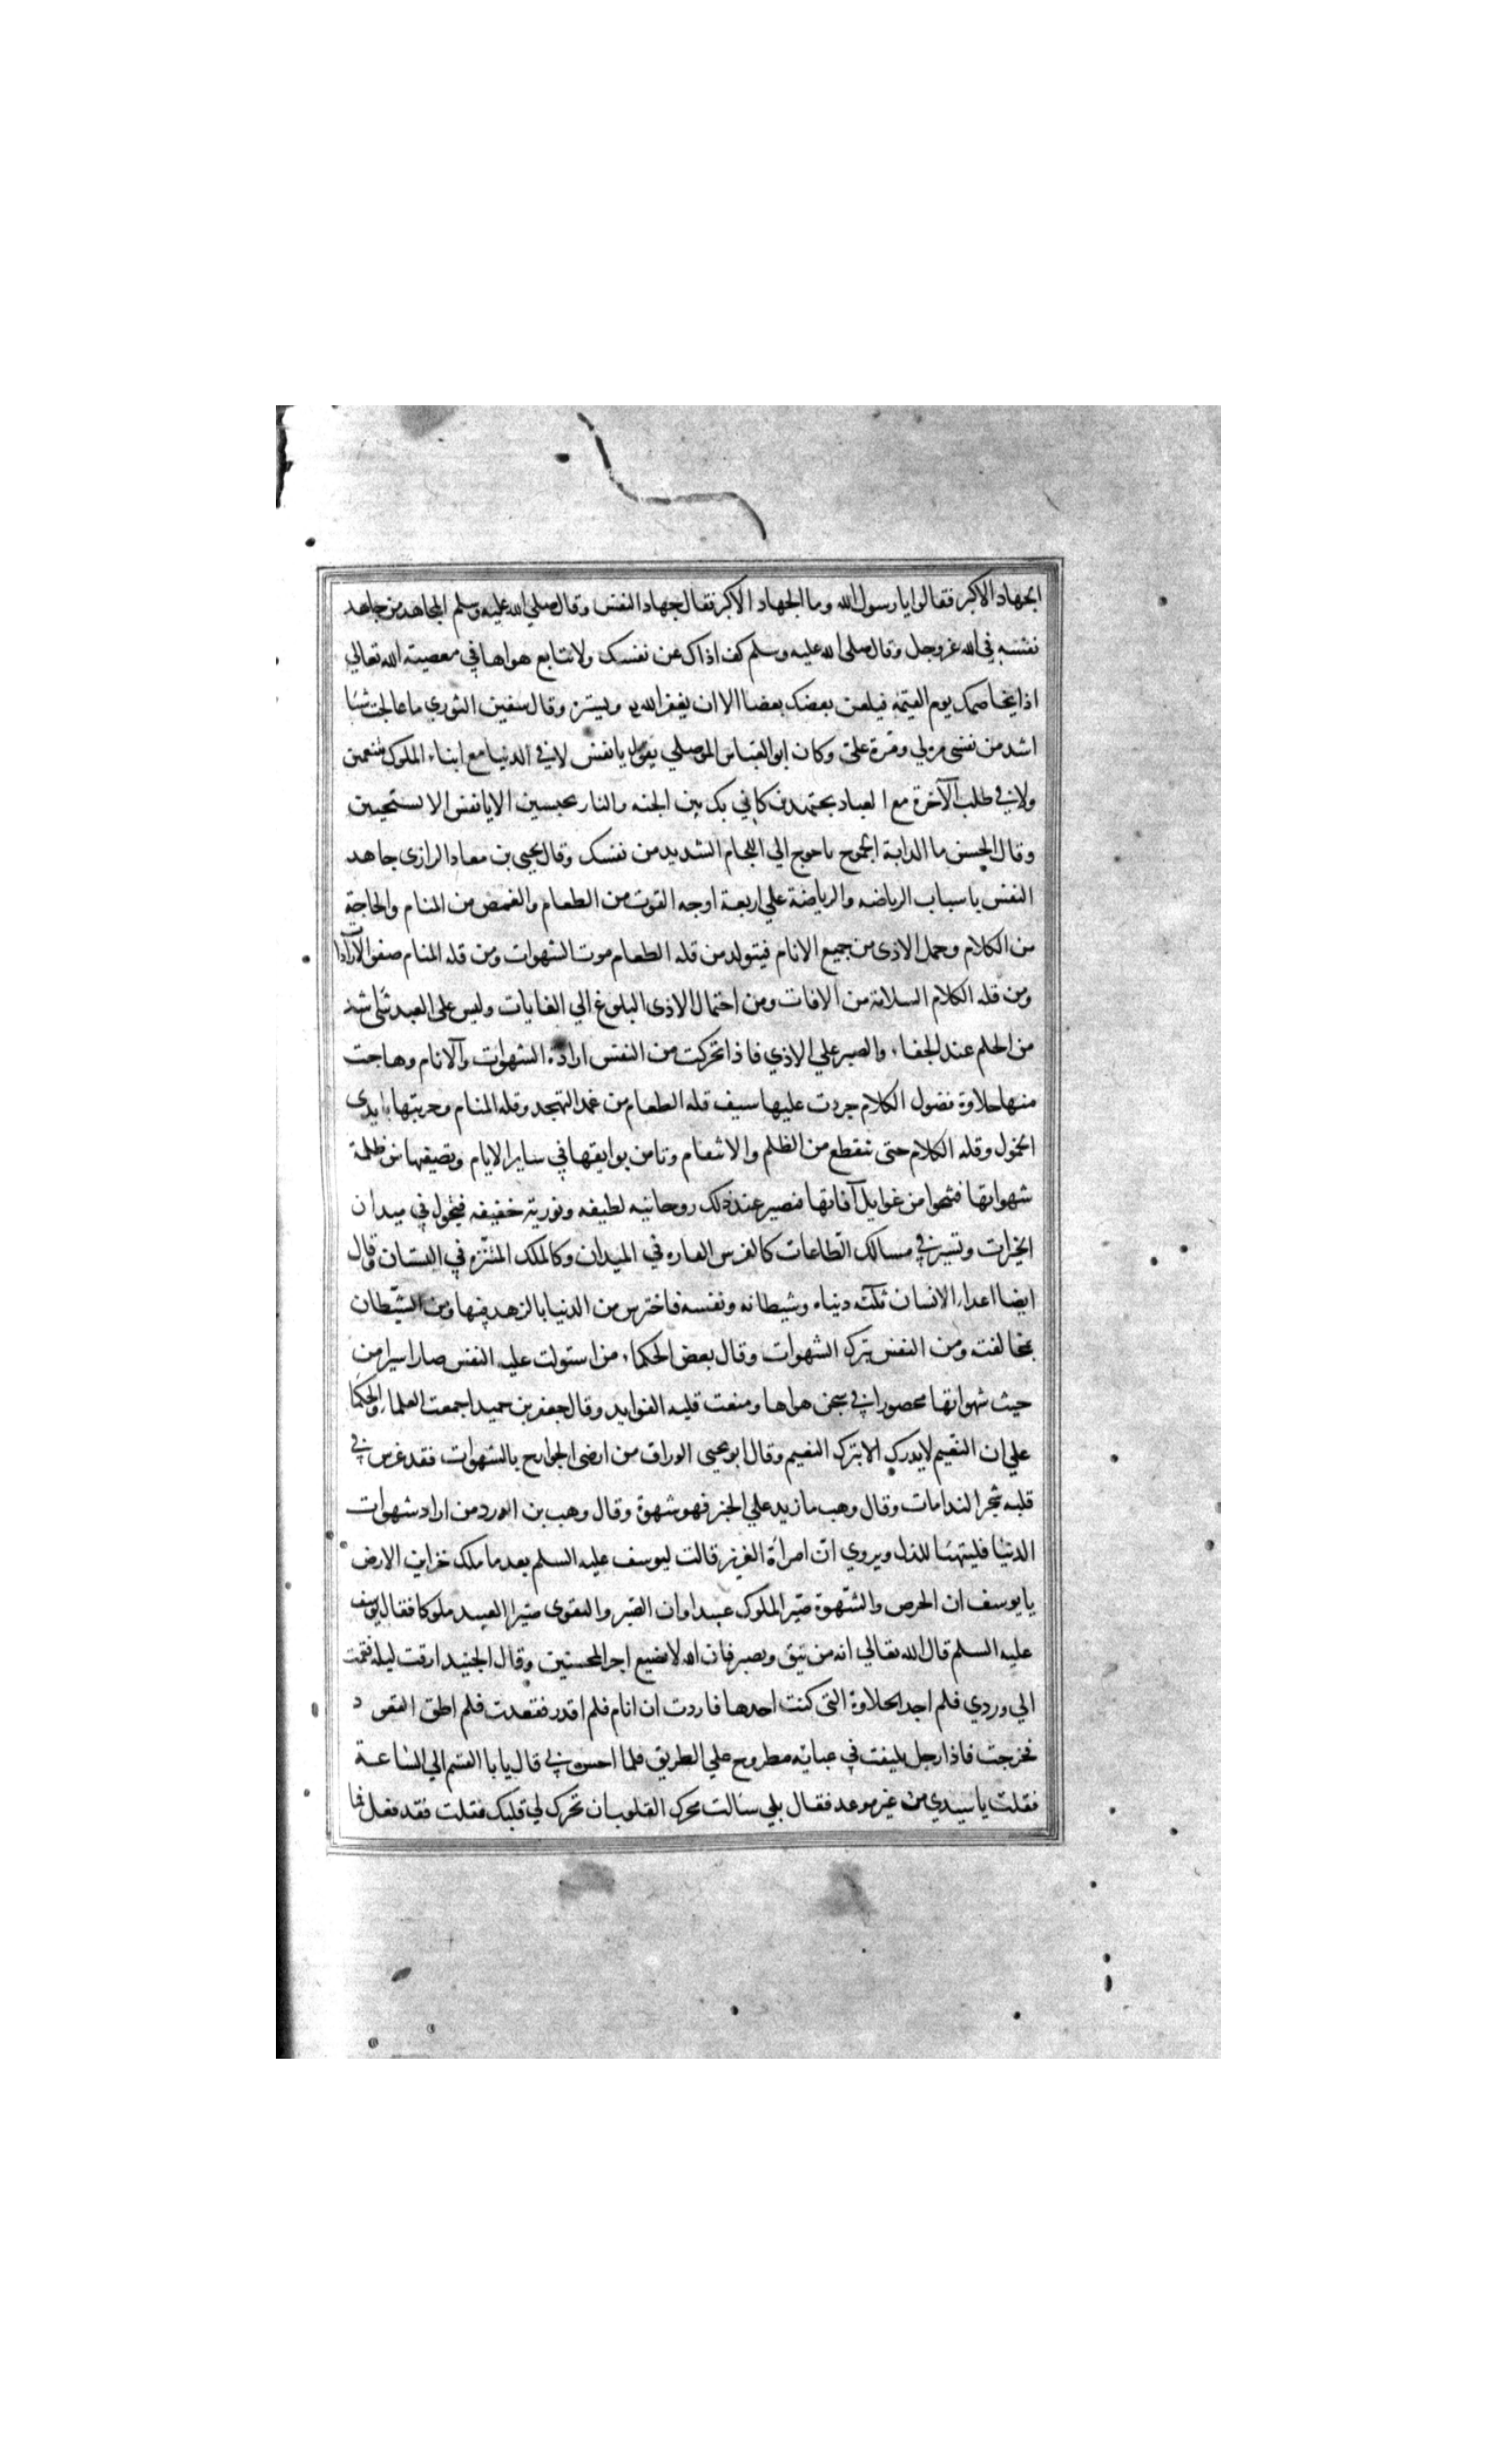 الجهاد الاكبر فقالوا يا رسول الله وما الجهاد الاكبر فقال جهاد النفس وقال صلى الله عليه وسلم المجاهد من جاهد
نفسه في الله عز وجل وقال صلى الله عليه وسلم كف اذاك عن نفسك ولا تتابع هواها في معصية الله تعالي
اذا يخاصمك يوم القيمة فيلعن بعضك بعضا الا ان يغفر الله ويستر وقال سفين الثوري ما عالجت شيا
اشد من نفسي مرة لي ومرة علي وكان ابو العباس الموصلي يقول يا نفس لا في الدنيا مع ابناء الملوك تتنعمين
ولا في طلب الآخرة مع العباد تجتهدين كاني بك بين الجنه والنار تحبسين الا يا نفس الا تستحيين
وقال الحسن ما الدابة الجموح باحوج الي اللجام الشديد من نفسك وقال يحيى بن معاد الرازى جاهد
النفس باسباب الرياضه والرياضة علي اربعة اوجه القوت من الطعام والغمض من المنام والحاجة
من الكلام وحمل الاذى من جميع الانام فيتولد من قله الطعام موت الشهوات ومن قله المنام صفو الآرادا
ومن قله الكلام السلامة من الافات ومن احتمال الاذى البلوغ الي الغايات وليس على العبد شي اشد
من الحلم عند الجفاء والصبر علي الاذي فاذا تحركت من النفس ارادة الشهوات والآنام وهاجت
منها حلاوة فضول الكلام جردت عليها سيف قله الطعام من غمد التهجد وقله المنام وضربتها بايدى
الخمول وقله الكلام حتى تنقطع من الظلم والانتقام وتامن بوايقها في ساير الايام وتصفيها من ظلمة
شهواتها فتنجوا من غوايل آفاتها فتصير عند ذلك روحانيه لطيفه ونورية خفيفه فتجول في ميدان
الخيرات وتسير في مسالك الطاعات كالفرس الفاره في الميدان وكالملك المتنزه في البستان وقال
ايضا اعداء الانسان ثلثه دنياه وشيطانه ونفسه فاحترس من الدنيا بالزهد فيها ومن الشيطان
بمخالفته ومن النفس بترك الشهوات وقال بعض الحكماء من استولت عليه النفس صار اسيرا من
حيث شهواتها محصورا في سجن هواها ومنعت قلبه الفوايد وقال جعفر بن حميد اجمعت العلماء والحكما
علي ان النعيم لا يدرك الا بترك النعيم وقال ابو يحيى الوراق من ارضى الجوارح بالشهوات فقد غرس في
قلبه شجر الندامات وقال وهب ما زيد علي الخبز فهو شهوة وقال وهب بن الورد من اراد شهوات
الدنيا فليتهيا للذل ويروي ان امراة العزيز قالت ليوسف عليه السلم بعد ما ملك خزاين الارض
يا يوسف ان الحرص والشهوة صير الملوك عبيدا وان الصبر والتقوى صيرا العبيد ملوكا فقال يوسف
عليه السلم قال الله تعالي انه من يتق ويصبر فان الله لا يضيع اجر المحسنين وقال الجنيد ارقت ليله فقمت
الي وردي فلم اجد الحلاوة التى كنت اجدها فاردت ان انام فلم اقدر فقعدت فلم اطق القعود
فخرجت فاذا رجل ملتف في عباية مطروح علي الطريق فلما احس بي قال يا ابا القسم الي الساعة
فقلت يا سيدي من غير موعد فقال بلي سالت محرك القلوب ان تحرك لي قلبك فقلت فقد فعل فما